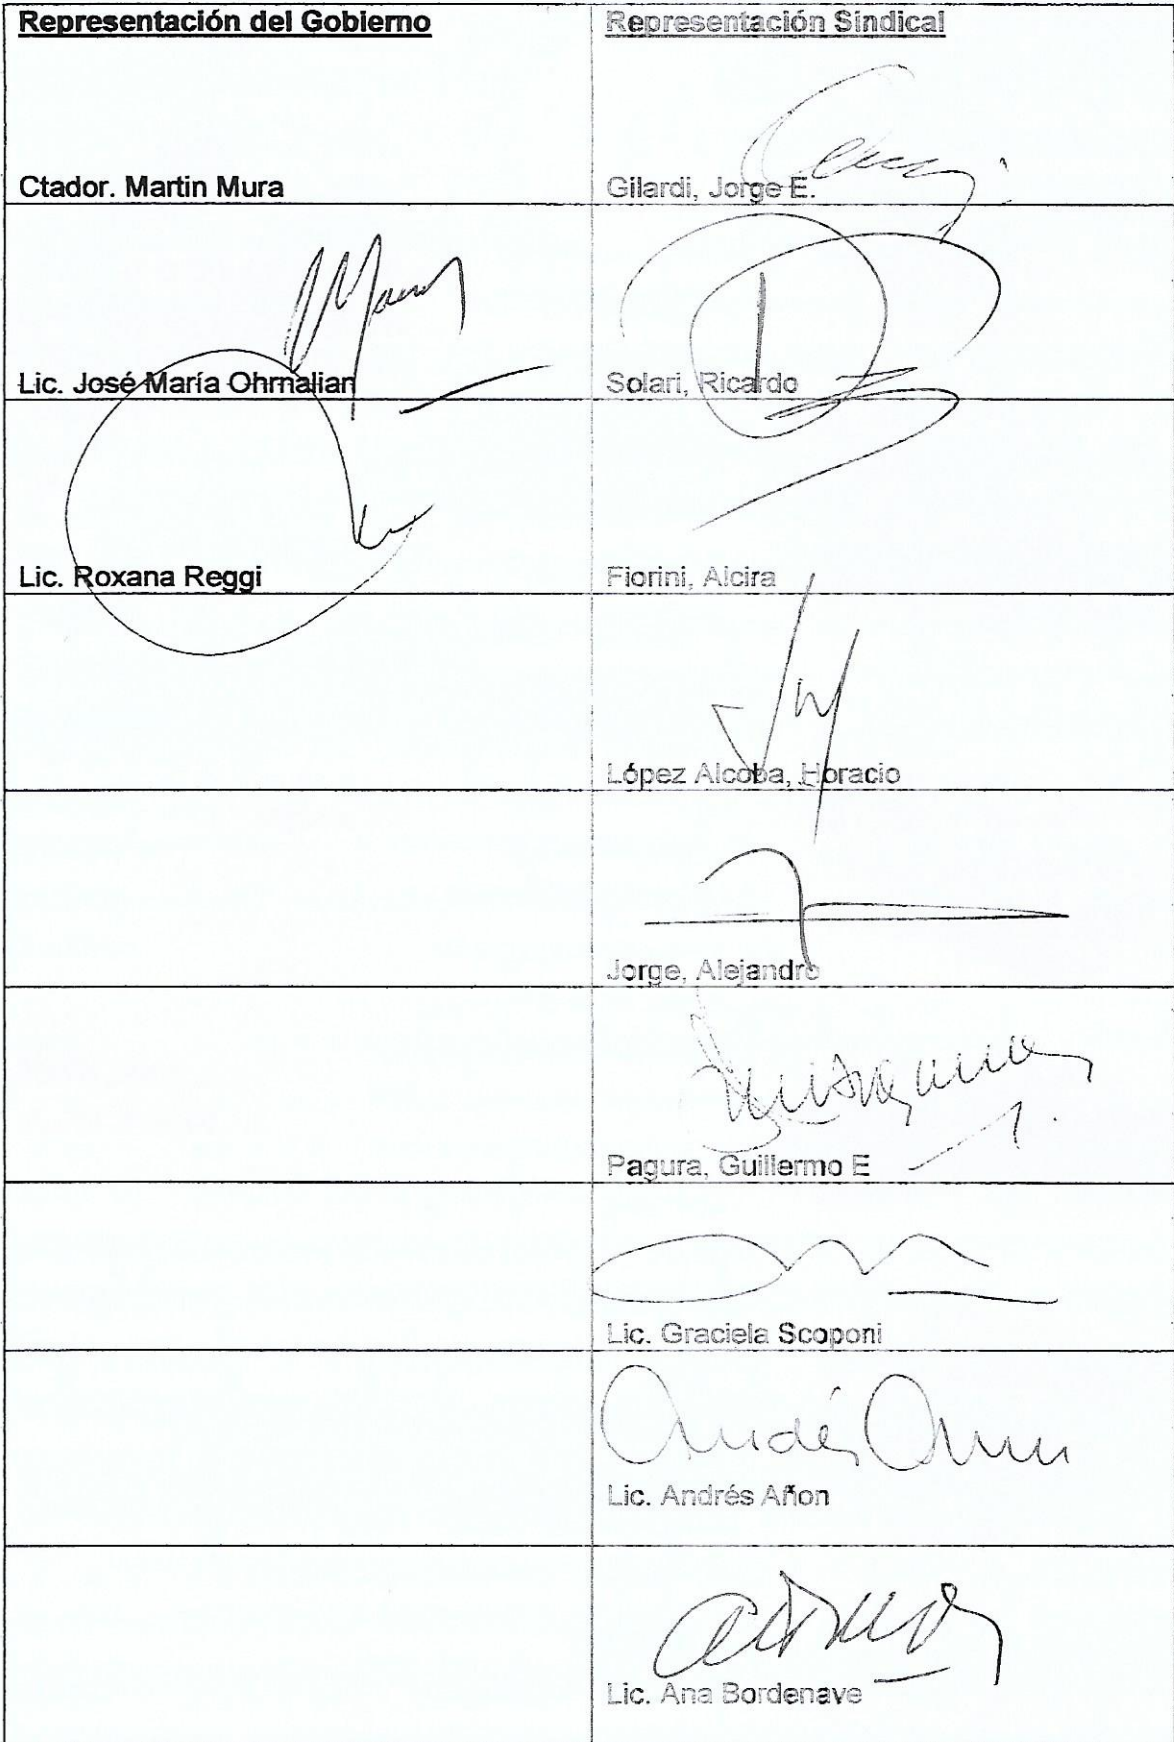 Representación del Gobierno
Representación Sindical
Ctador. Martin Mura
Gilardi, Jorge E.
Lic. José María Ohrnalian
Solari, Ricardo
Lic. Roxana Reggi
Fiorini, Alcira
López Alcoba, Horacio
Jorge, Alejandro
Pagura, Guillermo E
Lic. Graciela Scoponi
Andrés
Lic. Andrés Añon
Lic. Ana Bordenave